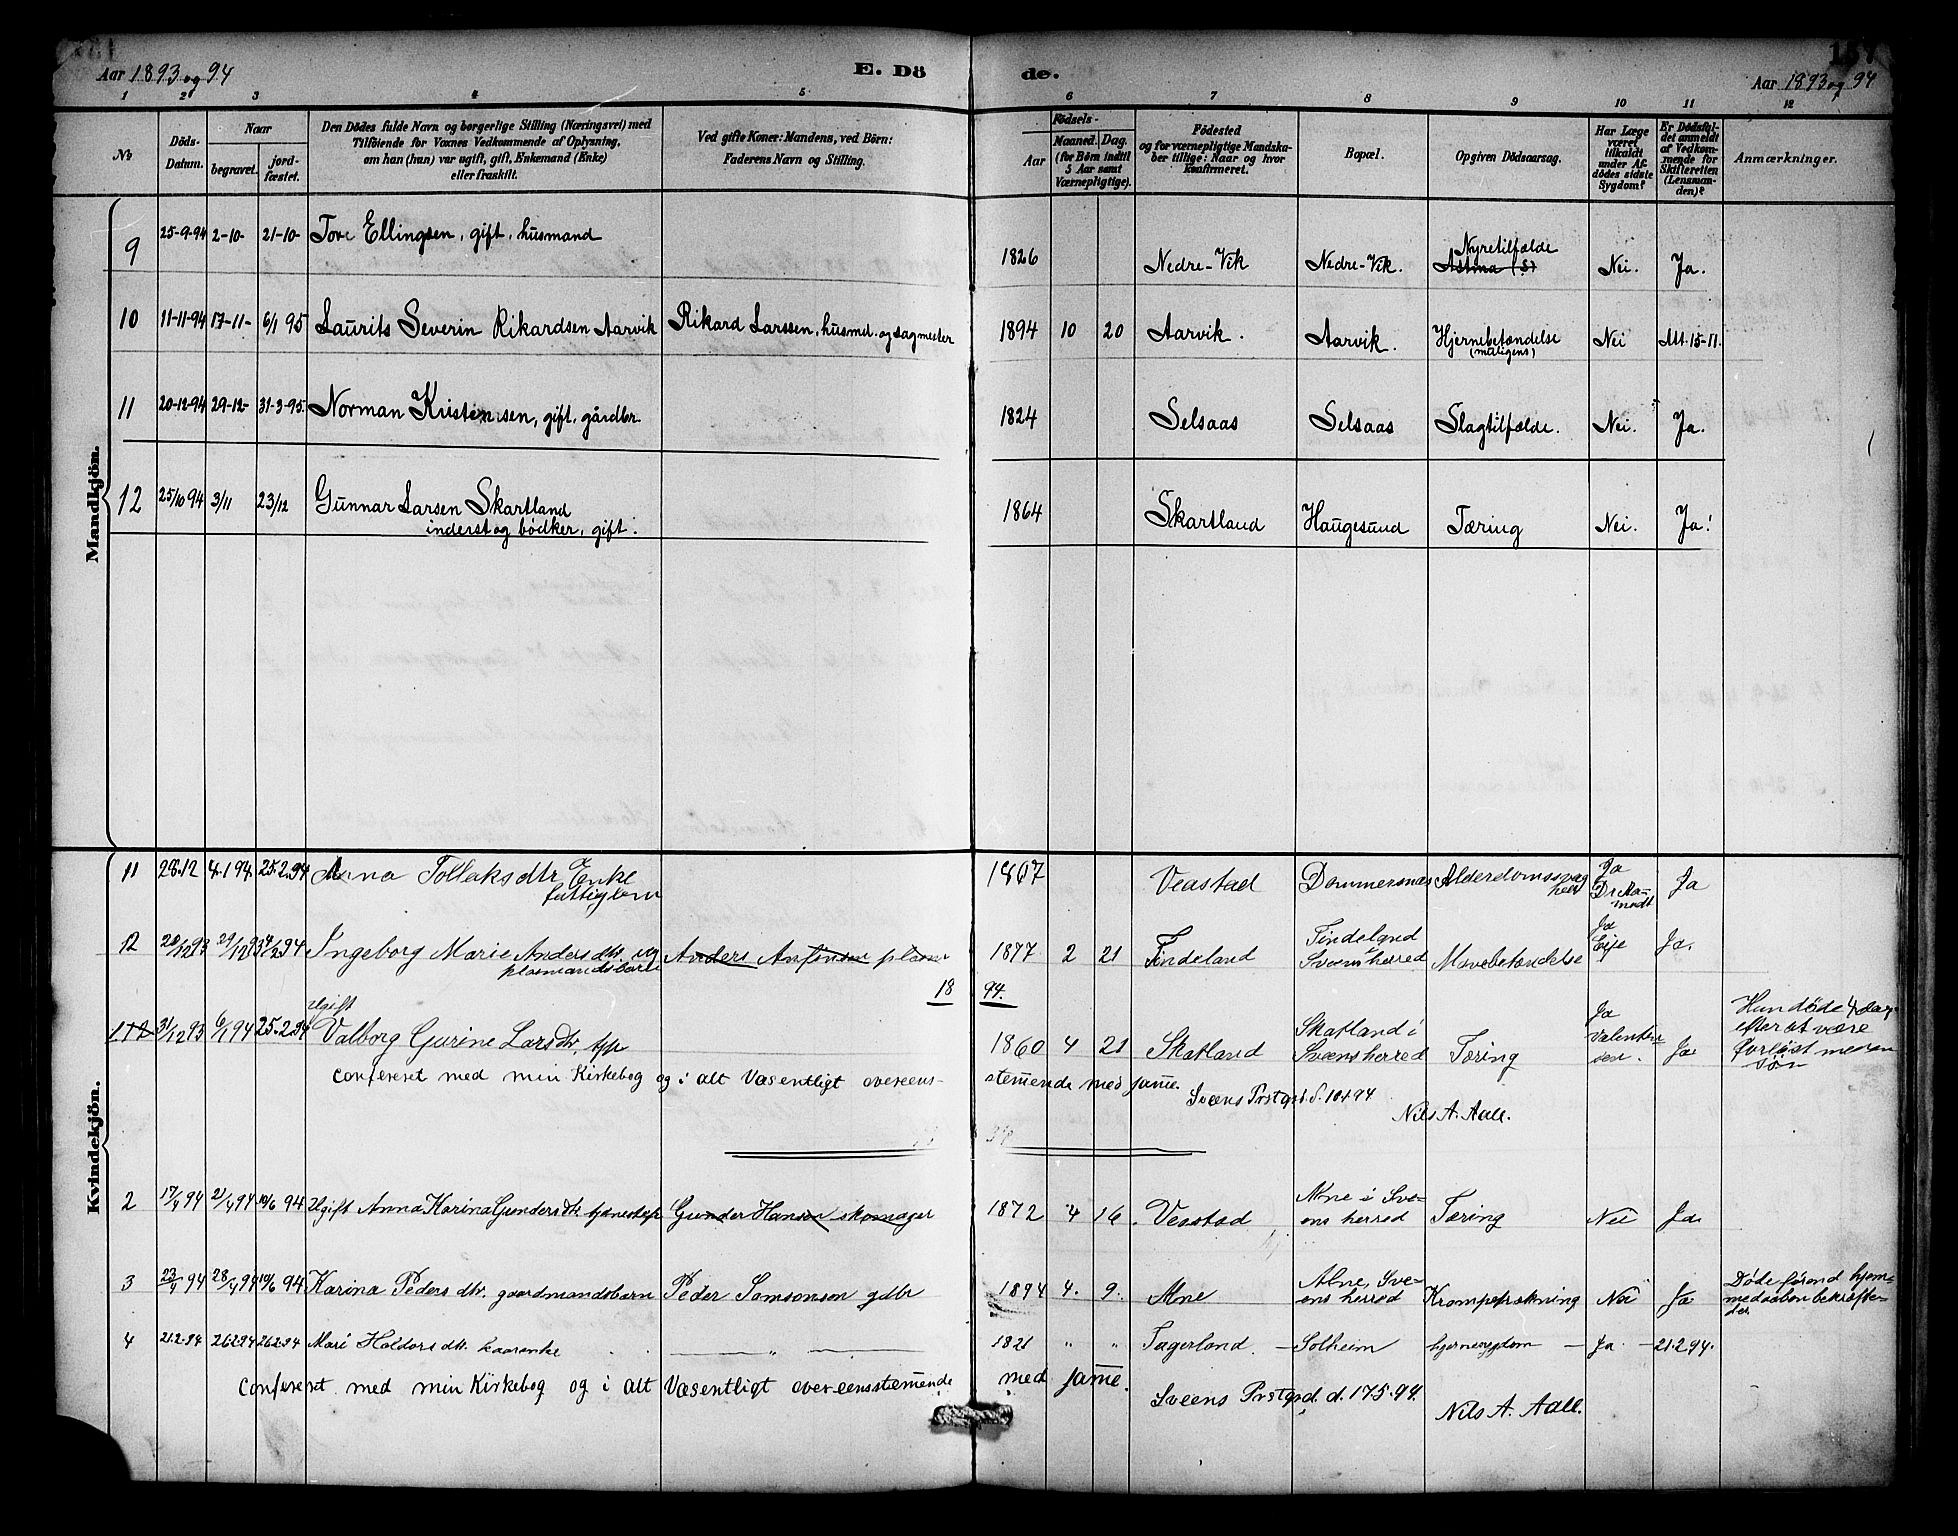 Aar 1893 og 94
E. Dö
de.
157
Aar 1893 og 94
1 2 3 4 5 6 7 8 9 10 11 12
№
Döds-Datum.
Naar
begravet.
jord-fæstet.
Den Dödes fulde Navn og borgerlige Stilling (Næringsvei) med
Tilföiende for Voxnes Vedkommende af Oplysning,
om han (hun) var ugift, gift, Enkemand (Enke)
eller fraskilt.
Ved gifte Koner: Mandens, ved Börn:
Faderens Navn og Stilling.
Födsels-
Aar
Maaned. Dag.
(for Börn indtil
5 Aar samt
Værnepligtige).
Födested
og for værnepligtige Mandska-
ber tillige: Naar og hvor
konfirmeret.
Bopæl.
Opgiven Dödsaarsag.
Har Læge
været
tilkaldt
under Af-
dödes sidste
Sygdom?
Er Dödsfal-
det anmeldt
af Vedkom-
mende for
Skifteretten
(Lensman-
den)?
Anmærkninger.
Mandkjön.
9 25-9-94 2-10- 21-10- Tore Ellingsen, gift, husmand 1826 Nedre-Vik Nedre-Vik. Nyretilfælde Astma (S) Nei. Ja.
10 11-11-94 17-11- 6/1 95 Laurits Severin Rikardsen Aarvik Rikard Larssen, husmd. og sagmester 1894 10 20 Aarvik. Aarvik. Hjernebetændelse (muligens) Nei Att. 15-11.
11 20-12-94 29-12- 31-3-95. Norman Kristensen, gift, gårdbr. 1824 Selsaas Selsaas Slagtilfælde. Nei. Ja.
12 25/10 94 3/11 23/12 Gunnar Larsen Skartland
inderst og bødker, gift. 1864 Skartland Haugesund Tæring Nei. Ja!
Kvindekjön.
11 28.12 4.1 94. 25.2.94 Anna Tollaksdtr Enke
fattiglem 1807 Veastad Dommersnæs Alderdomssvaghed Ja Dr. Aamodt Ja
12 20/12 93 29/12 93 4/2 94 Ingeborg Marie Andersdtr. ug
plasmandsbarn Anders Anfinsen plasm 1877 2 21 Tindeland Tindeland Sveens herred Mavebetændelse Ja Eije Ja.
18 94.
Ugift
112 31/12 93 6/1 94 25.2.94 Valborg Gurine Larsdtr, tjp 1860 4 21 Skatland Skatland i Sveens herred Tæring Ja Valentinsen. Ja Hun døde 4 dage efter at være forløst med en Søn
confereret med min Kirkebog og i alt Væsentligt overeens-
stemende med same.
Sveens Prstgrd. d. 10 4 94
Nils A. Aall.
2 17/4 94 21/4 94 10/6 94 Ugift Anna Karina Gundersdtr. tjenestep Gunder Hansen skomager 1872 4 16 Veastad Alne i Sveens herred Tæring Nei Ja
3 23/4 94 28/4 94 10/6 94 Karina Pedersdtr. gaardmandsbarn Peder Samsonsen gdbr 1894 4. 9. Alne Alne, Sveens herred Krampetrækning Nei Ja Døde førend hjemmedaaben bekræftedes
4 21.2.94 26.2.94 26.2.94 Mari Haldorsdtr. kaarenke — " — 1821 " " Fagerland — Solheim hjernesygdom — Ja — 21.2.94.
confereret med min Kirkebog og i alt Væsentligt overeensstemende
med same.
Sveens Prstgrd. d. 17 5. 94.
Nils A. Aall.